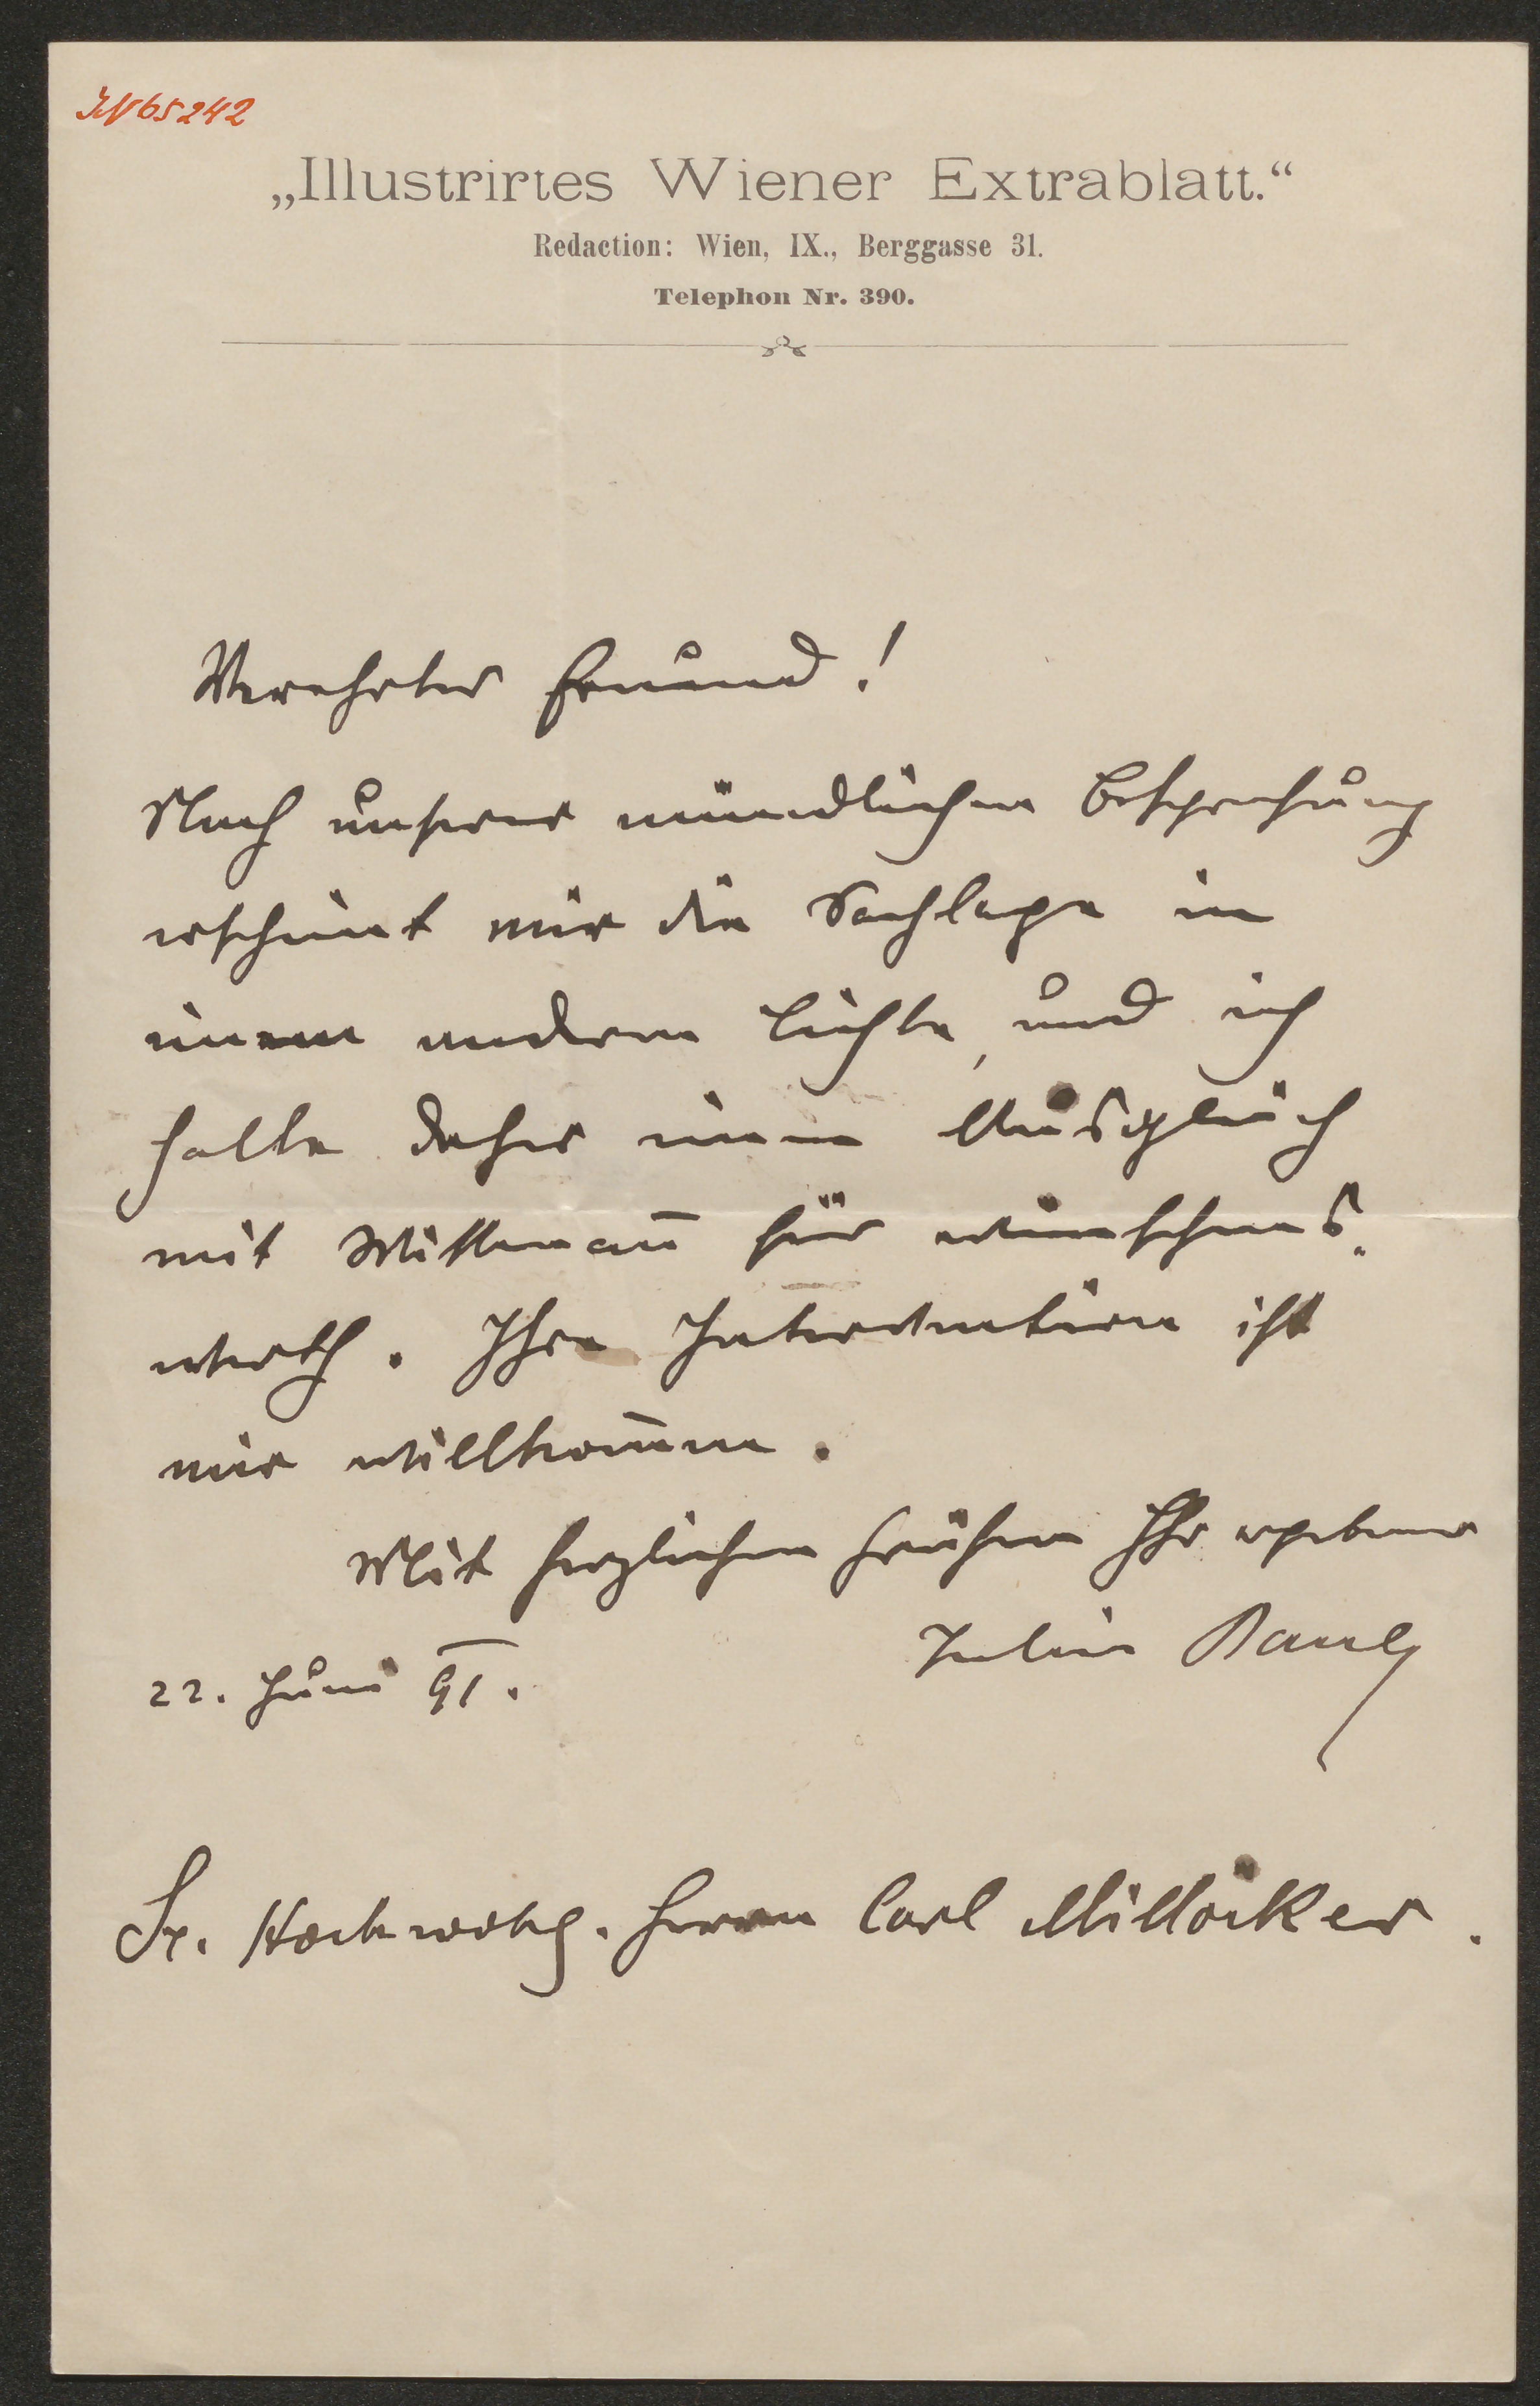 IN 65242
„Illustrirtes Wiener Extrablatt.“
Redaction: Wien, IX., Berggasse 31.
Telephon Nr. 390.
Verehrter Freund!
Nach unserer mündlichen Besprechung
erscheint mir die Sachlage in
einem andern Lichte, und ich
halte daher einen Ausgleich
mit Wittmañ für wünschens„
werth. Ihre Intervention ist
mir willkom̄en.
Mit herzlichen Grüßen Ihr ergebener
Julius Bauer
22. Juni 91.
Sr. Hochwohlg. Herrn Carl Millöcker.